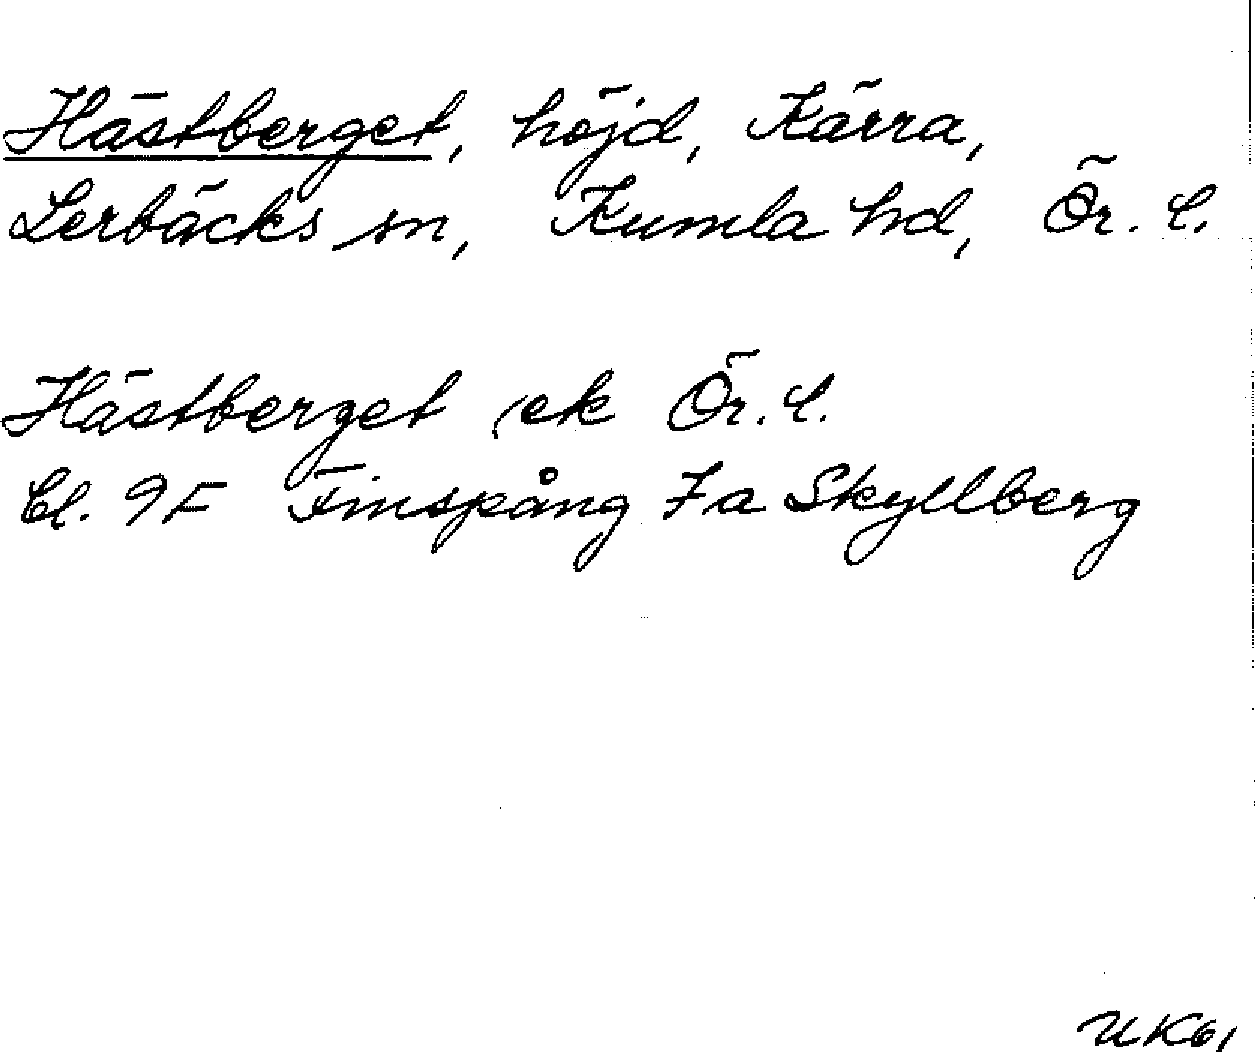 Hästberget, höjd, Kärra,
Lerbäcks sn, Kumla hd, Ör. l.
Hästberget, ek Ör. l.
bl. 9F Finspång 7a Skyllberg
UK61